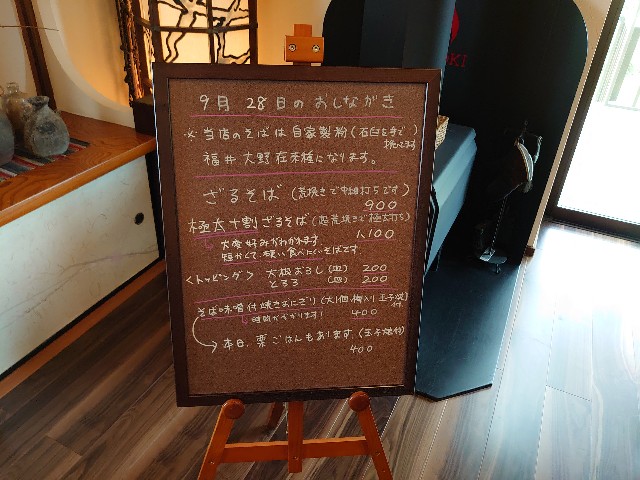 9月 28日の おしながき
※ 当店のそばは 自家製粉 (石臼を手で
挽いてます
福井 大野在来種になります。
ざるそば (荒挽きで中細打ちです)
900
極太十割ざるそば (超荒挽きで極太打ち)
1,100
大変好みがわかれます
短かくて、硬い食べにくいそばです。
<トッピング> 大根おろし (皿) 200
とろろ (皿) 200
そば味噌付焼きおにぎり (大1個 梅入り 玉子焼
付
時間がかかります! 400
本日、栗ごはんもあります。(玉子焼付)
400